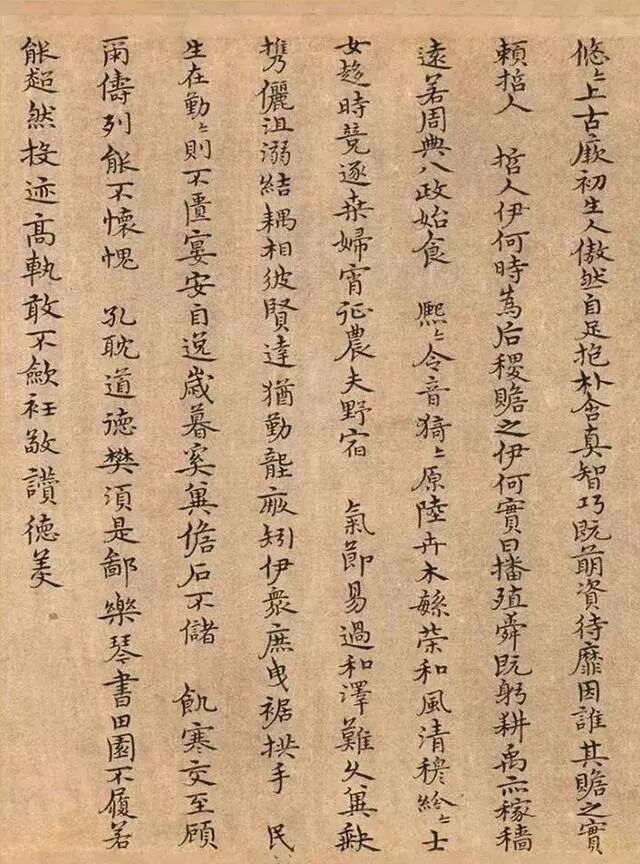 悠〻上古厥初生人傲然自足抱朴含真智巧既萌資待靡因誰其贍之實
賴哲人 哲人伊何時為后稷贍之伊何實曰播殖舜既躬耕禹亦稼穡
遠若周典八政始食 熙〻令音猗〻原陸卉木繁榮和風清穆紛〻士
女趍時競逐桒婦宵征農夫野宿 氣節易過和澤難久冀缺
携儷沮溺結耦相彼賢達猶勤壟畝矧伊衆庶曳裾拱手 民
生在勤〻則不匱宴安自逸歳暮奚冀儋石不儲 飢寒交至顧
爾儔列能不懷愧 孔耽道德樊須是鄙樂琴書田園不履若
能超然投迹高軌敢不歛衽敬讚德美